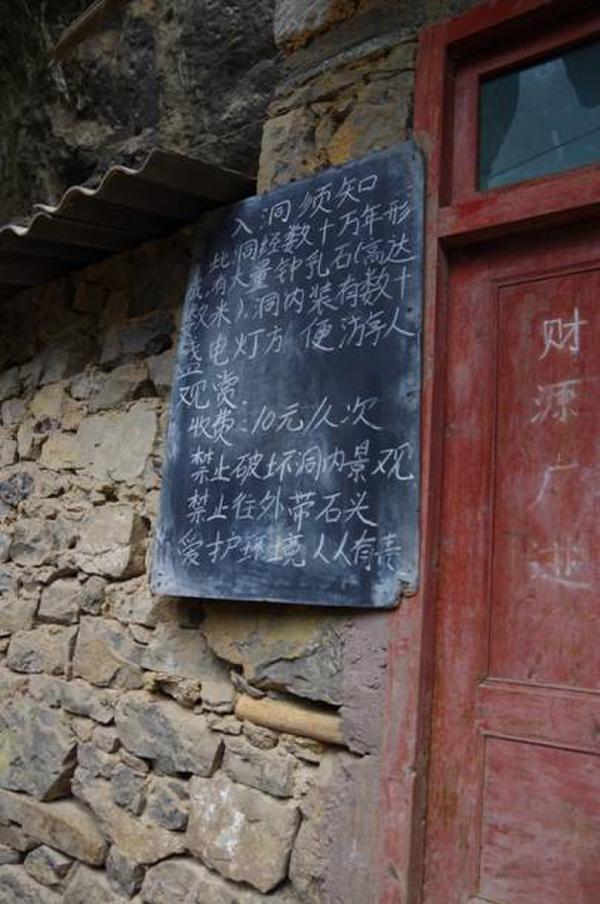 入洞须知
此洞经数十万年形
成,有大量钟乳石(高达
数米),洞内装有数十
盏电灯方便游人
观赏.
收费:10元/人次
禁止破坏洞内景观
禁止往外带石头
爱护环境人人有责
财
源
广
进